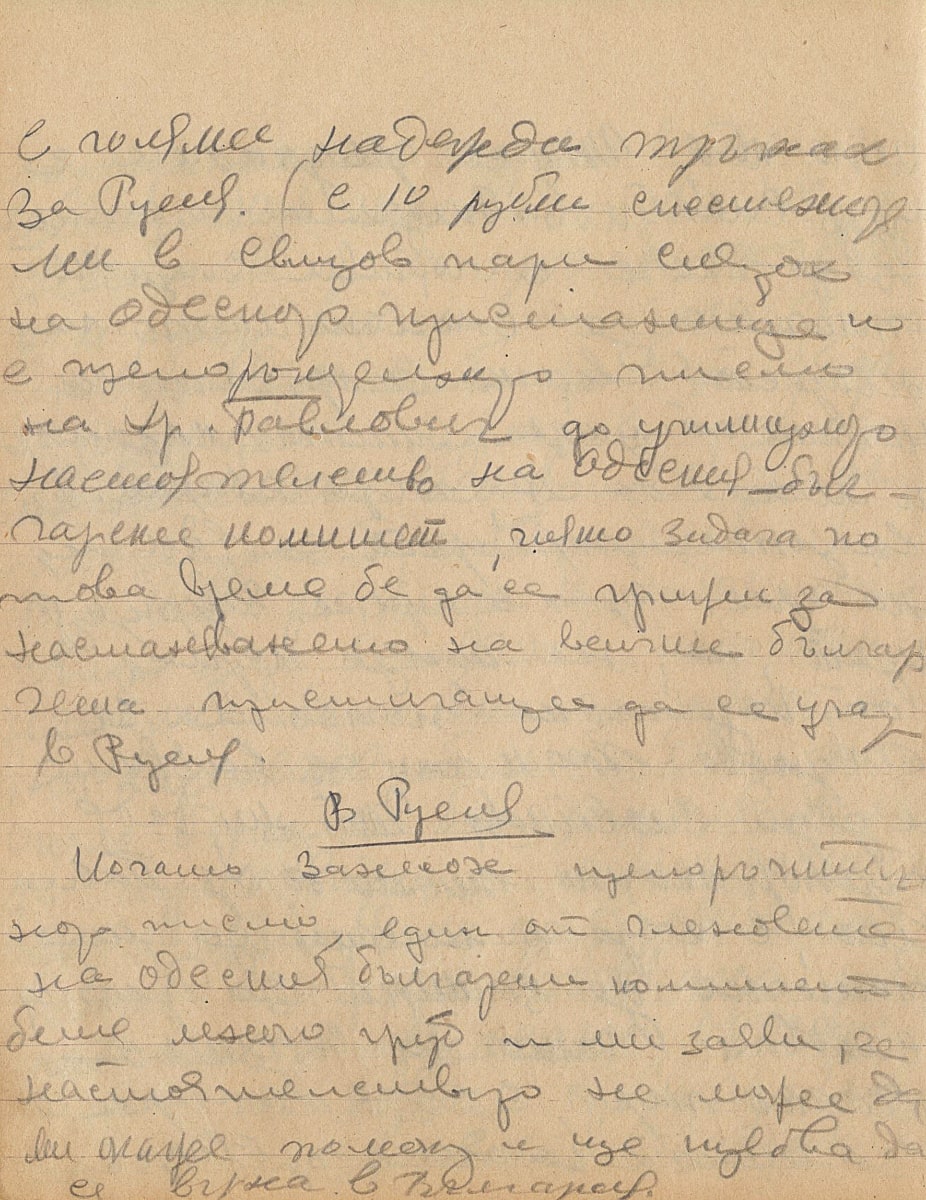 С голяма надежда тръгнах
за Русия. (с 10 рубли спестените
ми в Свищов пари слязох
на Одеското пристанище и
с препоръчително писмо
на Хр. Павлович до училищното
настоятелство на Одеския бъл-
гарски комитет, чиято задача по
това време бе да се грижи за
настаняването на всички българ
чета пристигащи да се учат
в Русия.
В Русия
Когато занесох препоръчител
ното писмо, един от членовете
на Одеския български комитет
беше много груб и ми заяви, че
настоятелството не може да
ми окаже помощ и ще трябва да
се върна в България.